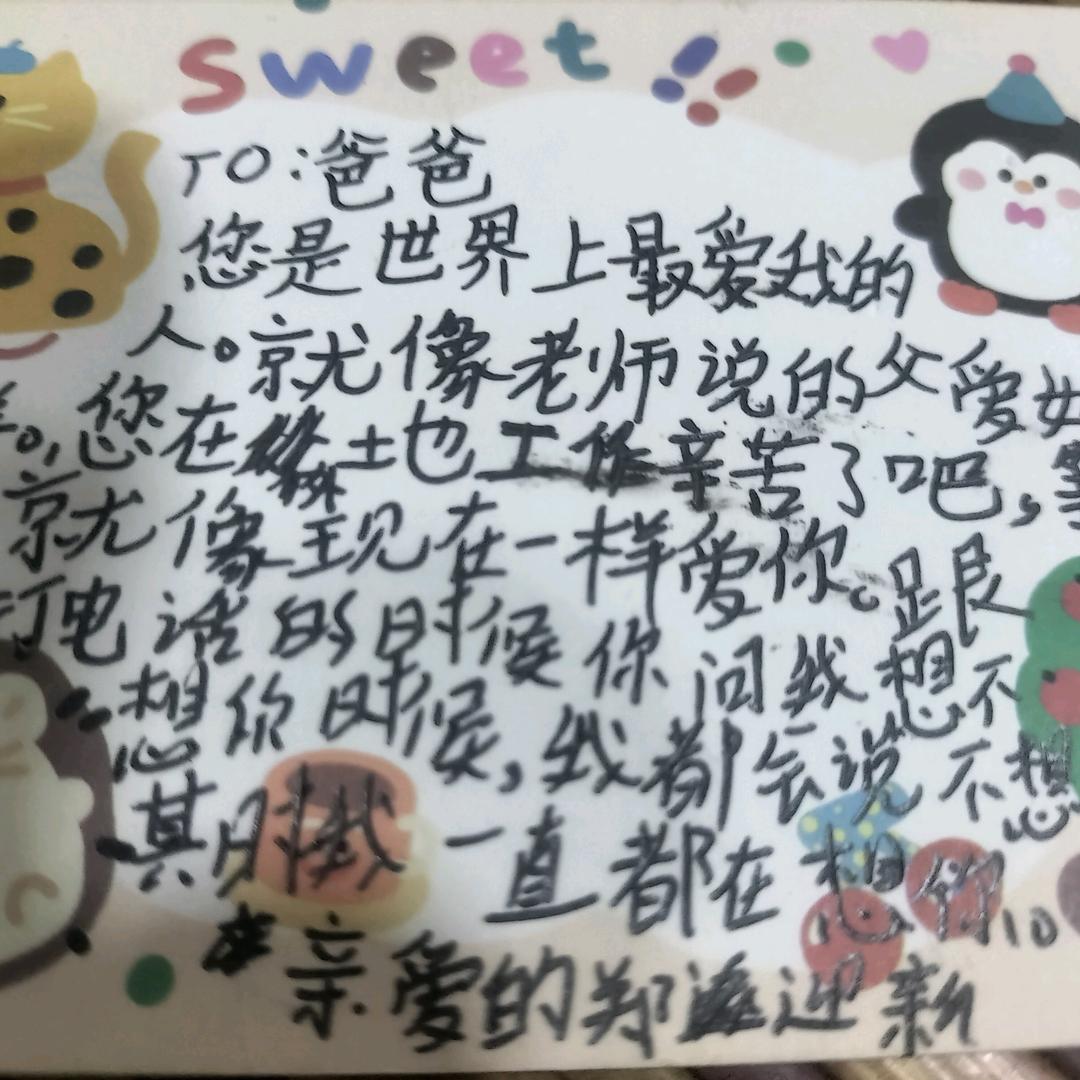 sweet
TO:爸爸
您是世界上最爱我的
人。就像老师说的父爱如
。您在土也工作辛苦了吧,
就像现在一样爱你。跟
打电话的时候你问我想不
想你时候,我都会说不想
其时我一直都在想你。
亲爱的郑迎新